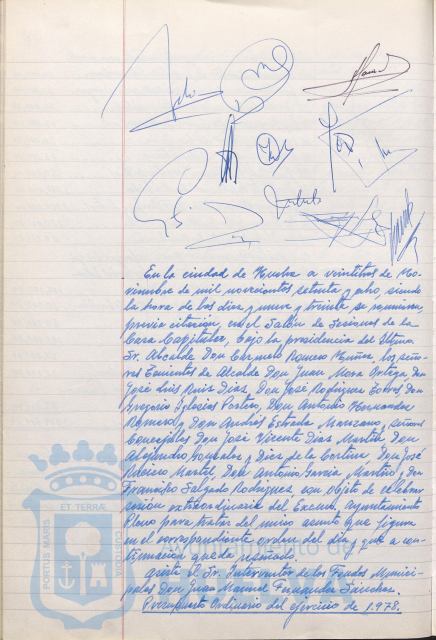 En la ciudad de Huelva a veintitres de No-
viembre de mil novecientos setenta y ocho, siendo
la hora de las diez y nueve y treinta se reunieron,
previa citacion, en el Salón de Sesiones de la
Casa Capitular, bajo la presidencia del Iltmo.
Sr. Alcalde Don Carmelo Romero Muñoz, los seño-
res Tenientes de Alcalde Don Juan Mora Ortega, Don
José Luis Ruiz Diaz, Don José Rodriguez Torres Don
Gregorio Iglesias Don Antonio Hernandez
Romero y Don Andrés Estrada Manzano y señores
Concejales Don José Vicente Diaz Martin, Don
Alejandro Gonzalez y Diez de la Cortina Don José
Martel, Don Antonio Garcia y Don
Francisco Salgado Rodriguez con objeto de celebrar
sesion extraordinaria del Excmo. Ayuntamiento
Pleno para tratar del unico asunto que figura
en el correspondiente orden del dia y que a con-
tinuación queda reseñado.
Asiste el Sr. Interventor de los Fondos Munici-
pales Don Juan Manuel Fernandez Sanchez.
Presupuesto Ordinario del ejercicio de 1.978.
PORTUS MARIS
ET TERRÆ
CUSTODIA